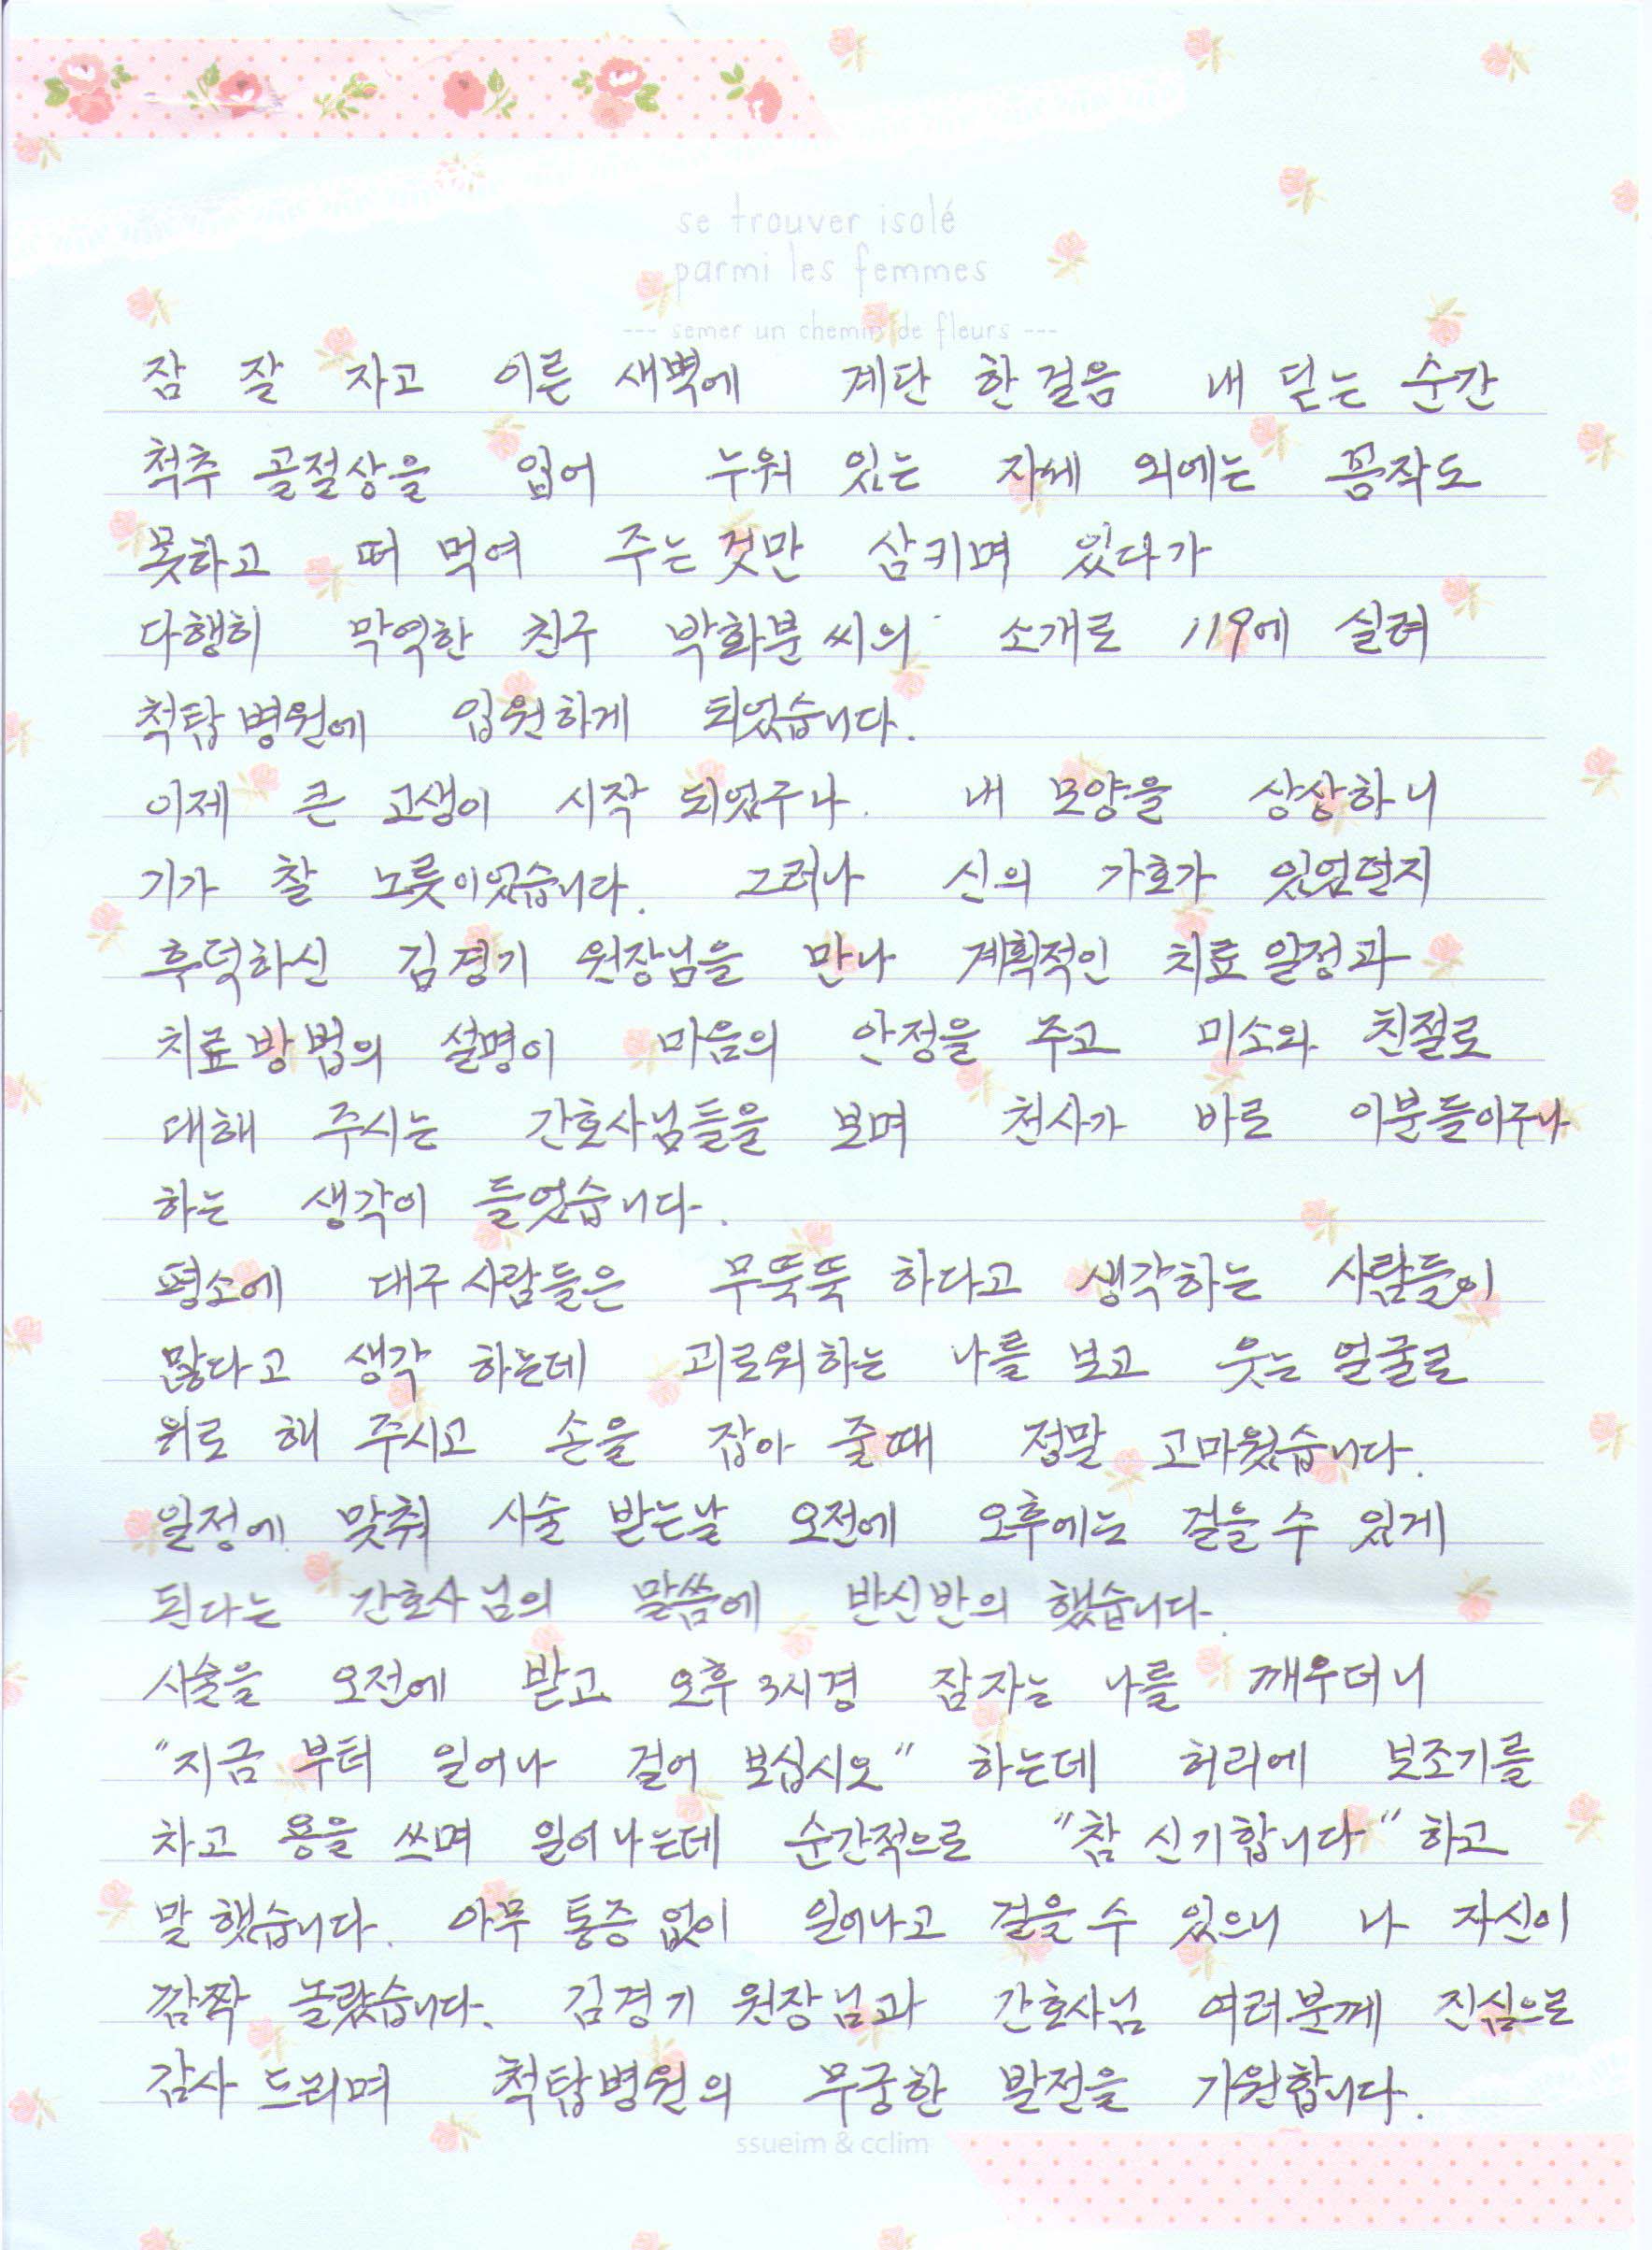 se trouver isolé
parmi les femmes
--- semer un chemin de fleurs ---
잠 잘 자고 이른 새벽에 계단 한걸음 내 딛는 순간
척추 골절상을 입어 누워 있는 자세 외에는 꼼작도
못하고 떠 먹여 주는 것만 삼키며 있다가
다행히 막역한 친구 박화분씨의 소개로 119에 실려
척탑병원에 입원하게 되었습니다.
이제 큰 고생이 시작 되었구나. 내 모양을 상상하니
기가 찰 노릇이었습니다. 그러나 신의 가호가 있었던지
후덕하신 김경기 원장님을 만나 계획적인 치료 일정과
치료방법의 설명이 마음의 안정을 주고 미소와 친절로
대해 주시는 간호사님들을 보며 천사가 바로 이분들이구나
하는 생각이 들었습니다.
평소에 대구사람들은 무뚝뚝 하다고 생각하는 사람들이
많다고 생각 하는데 괴로워하는 나를 보고 웃는 얼굴로
위로 해 주시고 손을 잡아 줄때 정말 고마웠습니다.
일정에 맞춰 시술 받는날 오전에 오후에는 걸을 수 있게
된다는 간호사님의 말씀에 반신반의 했습니다.
시술을 오전에 받고 오후 3시경 잠자는 나를 깨우더니
"지금 부터 일어나 걸어 보십시오" 하는데 허리에 보조기를
차고 용을 쓰며 일어나는데 순간적으로 "참 신기합니다" 하고
말 했습니다. 아무 통증 없이 일어나고 걸을 수 있으니 나 자신이
깜짝 놀랐습니다. 김경기 원장님과 간호사님 여러분께 진심으로
감사 드리며 척탑병원의 무궁한 발전을 기원합니다.
ssueim & cclim